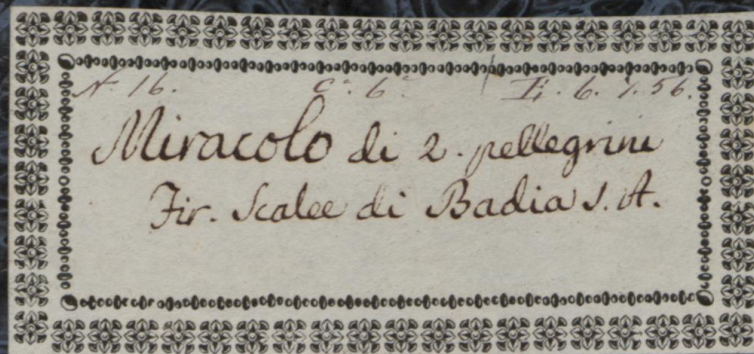 N. 16. C. 6. E. 6. 7. 56.
Miracolo di 2. pellegrini
Fir. Scalee di Badia s. A.